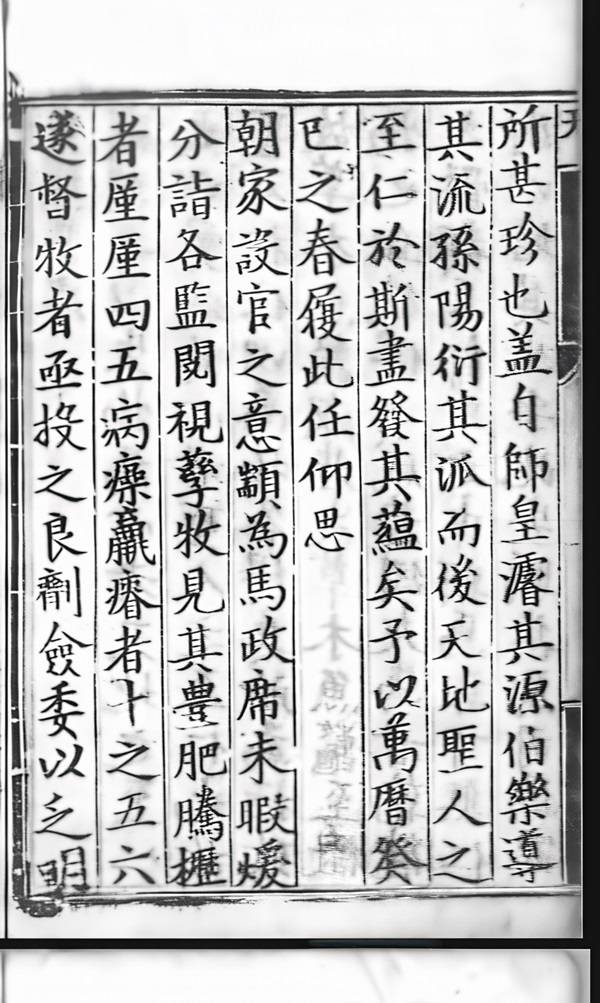 所甚珍也盖自師皇濬其源伯樂導
其流孫陽衍其派而後天地聖人之
至仁於斯盡發其蘊矣予以萬曆癸
巳之春履此任仰思
朝家設官之意顓為馬政席未暇煖
分詣各監閱視孳牧見其豊肥騰櫪
者厪厪四五病瘝羸瘠者十之五六
遂督牧者亟投之良劑僉委以乏明